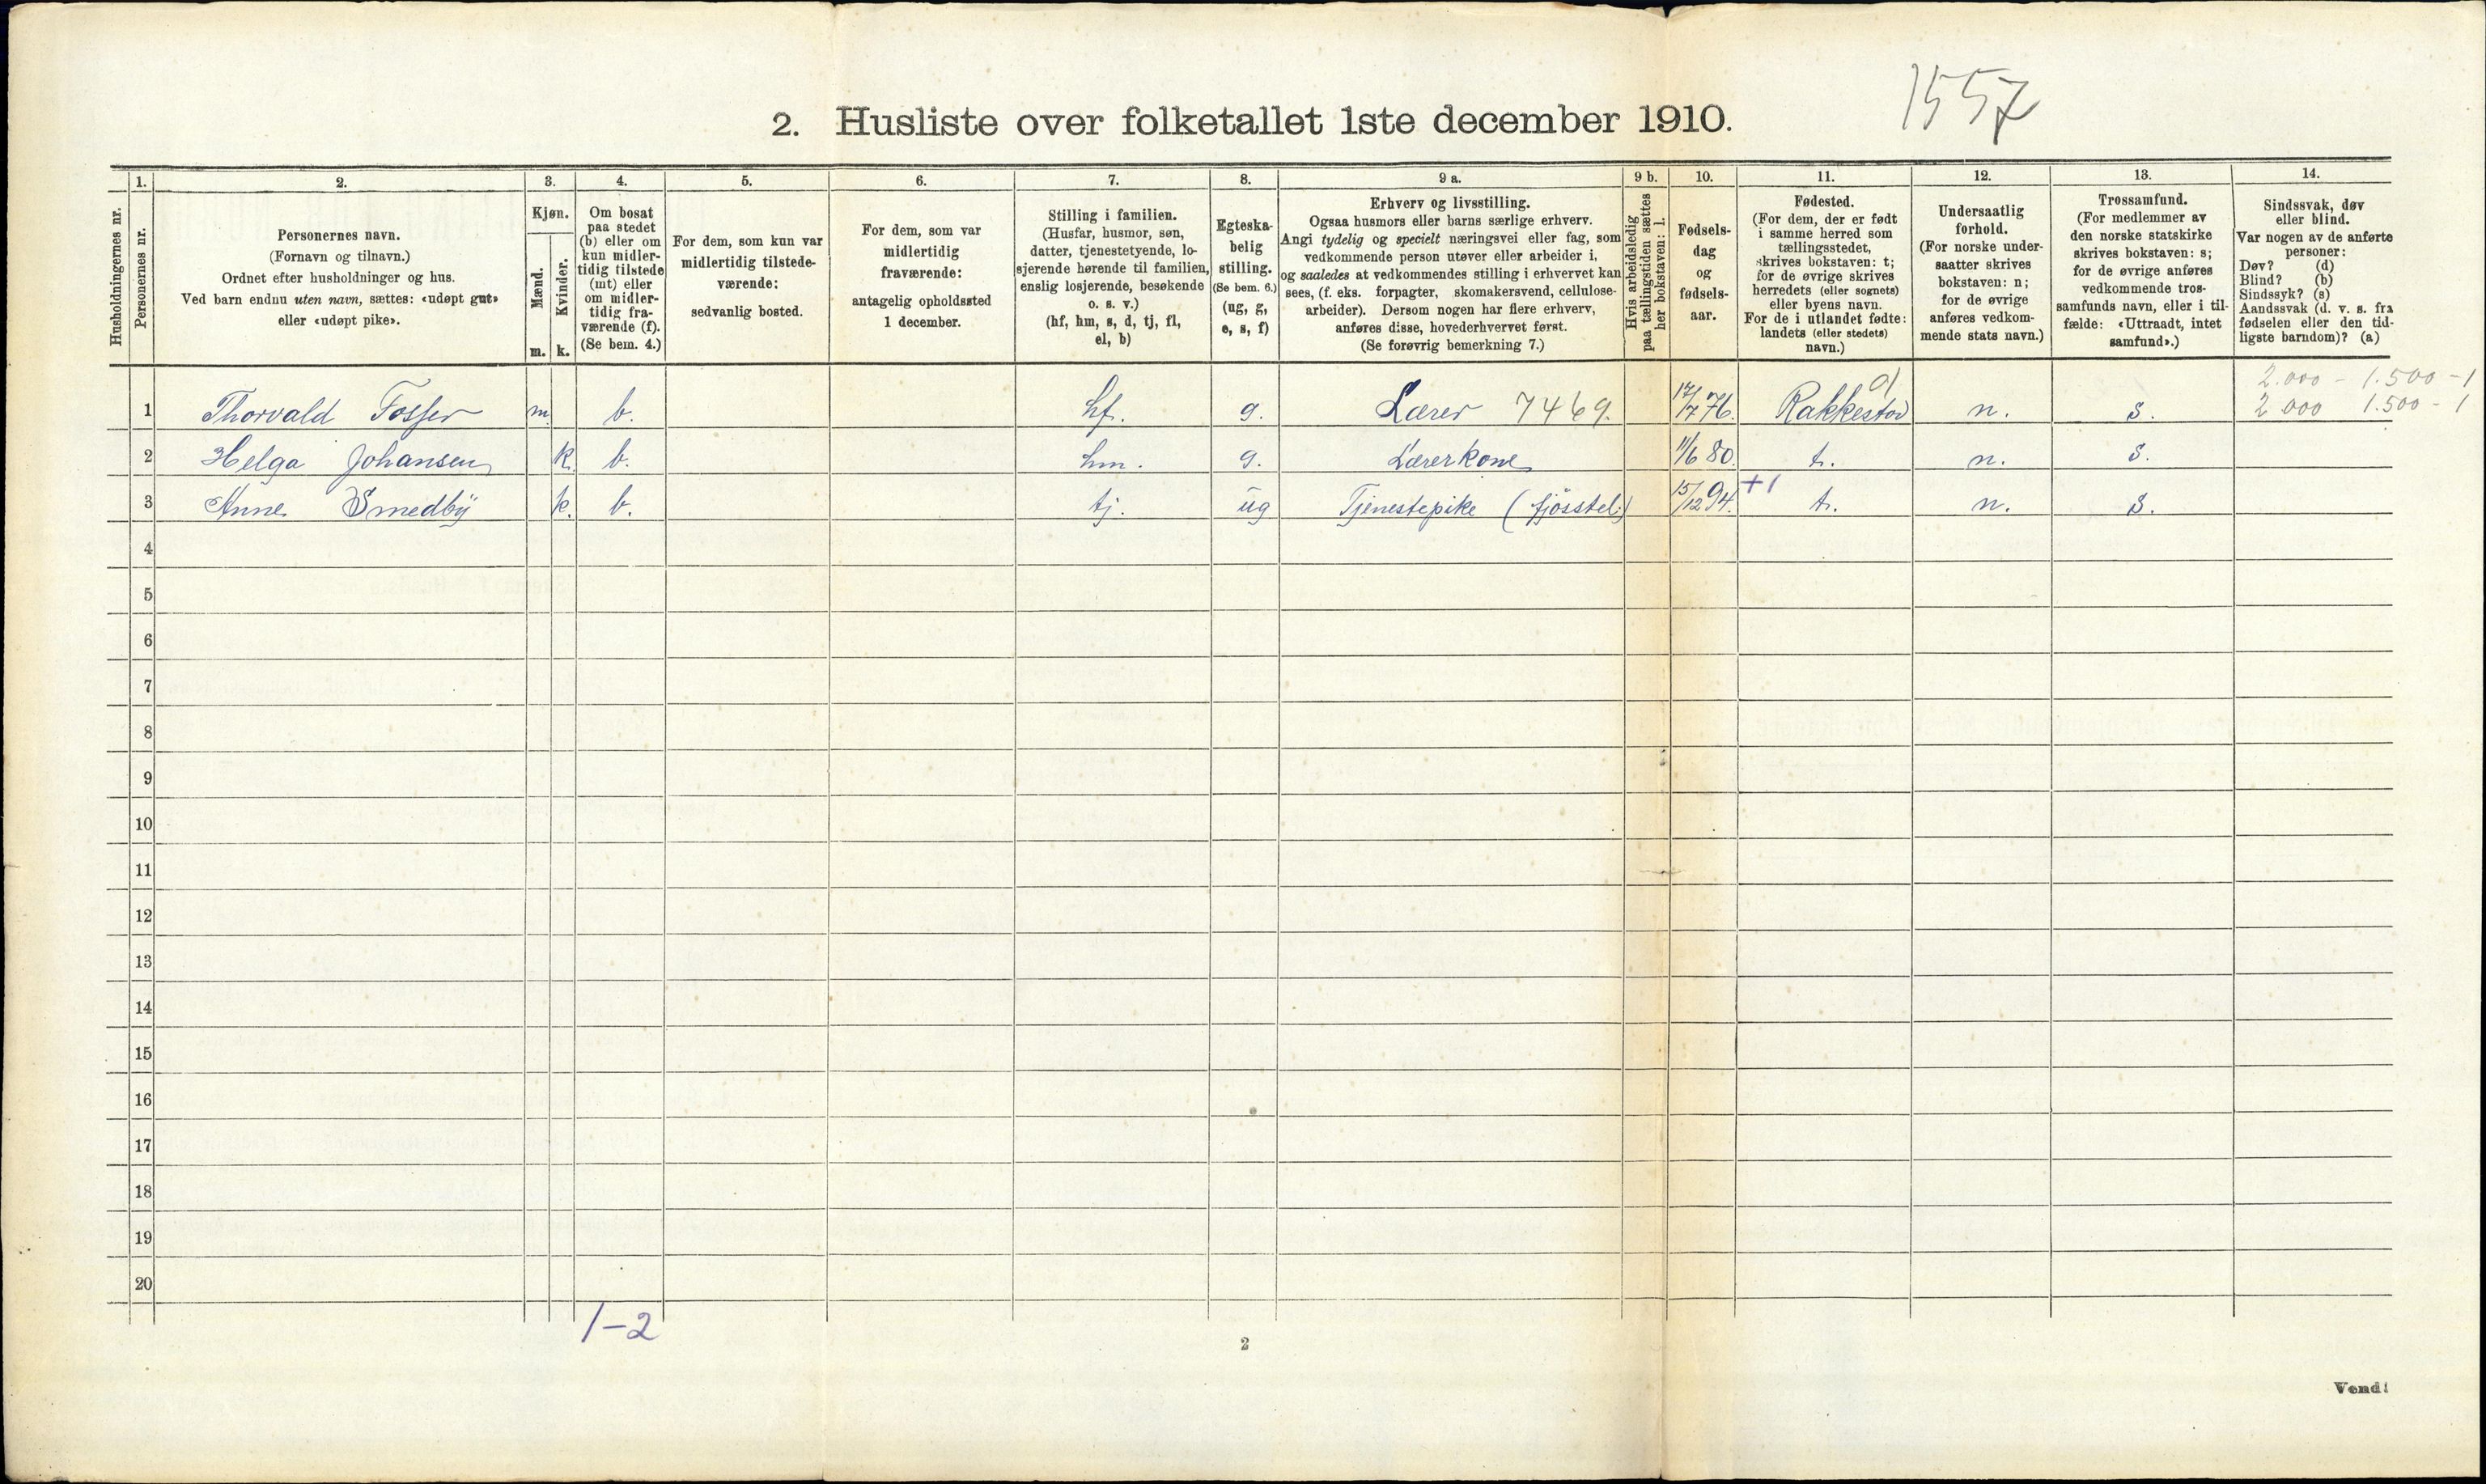 1557
2. Husliste over folketallet 1ste december 1910.
Husholdningernes nr.
1.
Personernes nr.
2.
Personernes navn.
(Fornavn og tilnavn.)
Ordnet efter husholdninger og hus.
Ved barn endnu uten navn, sættes: «udøpt gut»
eller «udøpt pike».
3.
Kjøn.
Mænd.
Kvinder.
m. k.
4.
Om bosat
paa stedet
(b) eller om
kun midler-
tidig tilstede
(mt) eller
om midler-
tidig fra-
værende (f).
(Se bem. 4.)
5.
For dem, som kun var
midlertidig tilstede-
værende:
sedvanlig bosted.
6.
For dem, som var
midlertidig
fraværende:
antagelig opholdssted
1 december.
7.
Stilling i familien.
(Husfar, husmor, søn,
datter, tjenestetyende, lo-
sjerende hørende til familien,
enslig losjerende, besøkende
o. s. v.)
(hf, hm, s, d, tj, fl,
el, b)
8.
Egteska-
belig
stilling.
(Se bem. 6.)
(ug, g,
e, s, f)
9 a.
Erhverv og livsstilling.
Ogsaa husmors eller barns særlige erhverv.
Angi tydelig og specielt næringsvei eller fag, som
vedkommende person utøver eller arbeider i,
og saaledes at vedkommendes stilling i erhvervet kan
sees, (f. eks. forpagter, skomakersvend, cellulose-
arbeider). Dersom nogen har flere erhverv,
anføres disse, hovederhvervet først.
(Se forøvrig bemerkning 7.)
9 b.
Hvis arbeidsledig
paa tællingstiden sættes
her bokstaven: l.
10.
Fødsels-
dag
og
fødsels-
aar.
11.
Fødested.
(For dem, der er født
i samme herred som
tællingsstedet,
skrives bokstaven: t;
for de øvrige skrives
herredets (eller sognets)
eller byens navn.
For de i utlandet fødte:
landets (eller stedets)
navn.)
12.
Undersaatlig
forhold.
(For norske under-
saatter skrives
bokstaven: n;
for de øvrige
anføres vedkom-
mende stats navn.)
13.
Trossamfund.
(For medlemmer av
den norske statskirke
skrives bokstaven: s;
for de øvrige anføres
vedkommende tros-
samfunds navn, eller i til-
fælde: «Uttraadt, intet
samfund».)
14.
Sindssvak, døv
eller blind.
Var nogen av de anførte
personer:
Døv? (d)
Blind? (b)
Sindssyk? (s)
Aandssvak (d. v. s. fra
fødselen eller den tid-
ligste barndom)? (a)
2.000 - 1.500 - 1
1 Thorvald Fosser m b. hf. g. Lærer 7469. 17/7 76. Rakkestad 01 n. s. 2.000 1.500 - 1
2 Helga Johansen k. b. hm. g. Lærerkone 11/6 80. t. n. s.
3 Anne Smedby k. b. tj. ug Tjenestepike (fjösstel) 15/12 94. +1 t. n. s.
4
5
6
7
8
9
10
11
12
13
14
15
16
17
18
19
20
1-2
2
Vend!